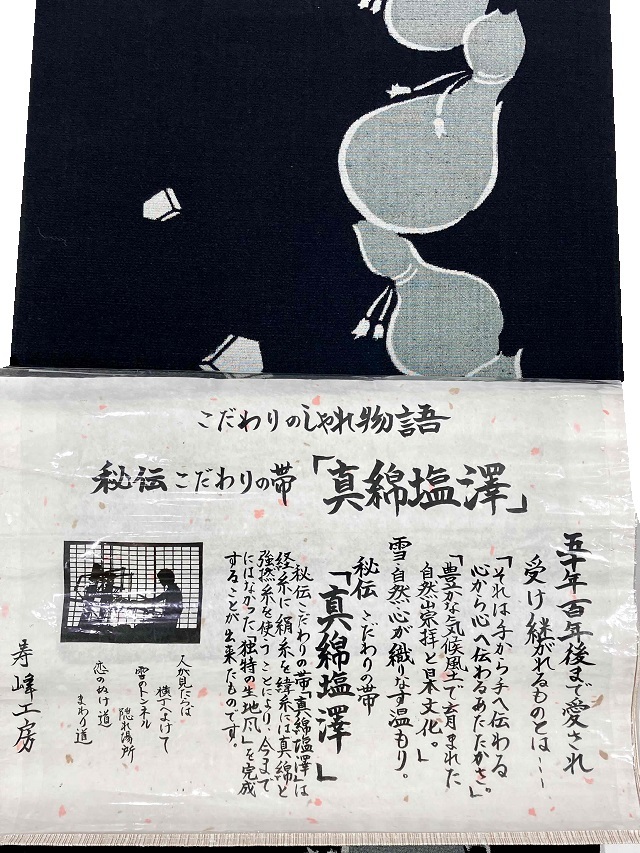 こだわりのしゃれ物語
秘伝こだわりの帯「真綿塩澤」
五十年百年後まで愛され
受け継がれるものとは・・・
「それは手から手へ伝わる
心から心へ伝わるあたたかさ。」
「豊かな気候風土で育まれた
自然崇拝と日本文化。」
雪・自然・心が織りなす温もり。
秘伝 こだわりの帯
「真綿塩澤」
秘伝こだわりの帯「真綿塩澤」は
経糸に絹糸を緯糸には真綿と
強撚糸を使うことにより、今まで
にはなかった「独特の生地風」を完成
することが出来たものです。
人が見たらば
横丁へよけて
雪のトンネル
隠れ場所
恋のぬけ道
まわり道
寿峰工房